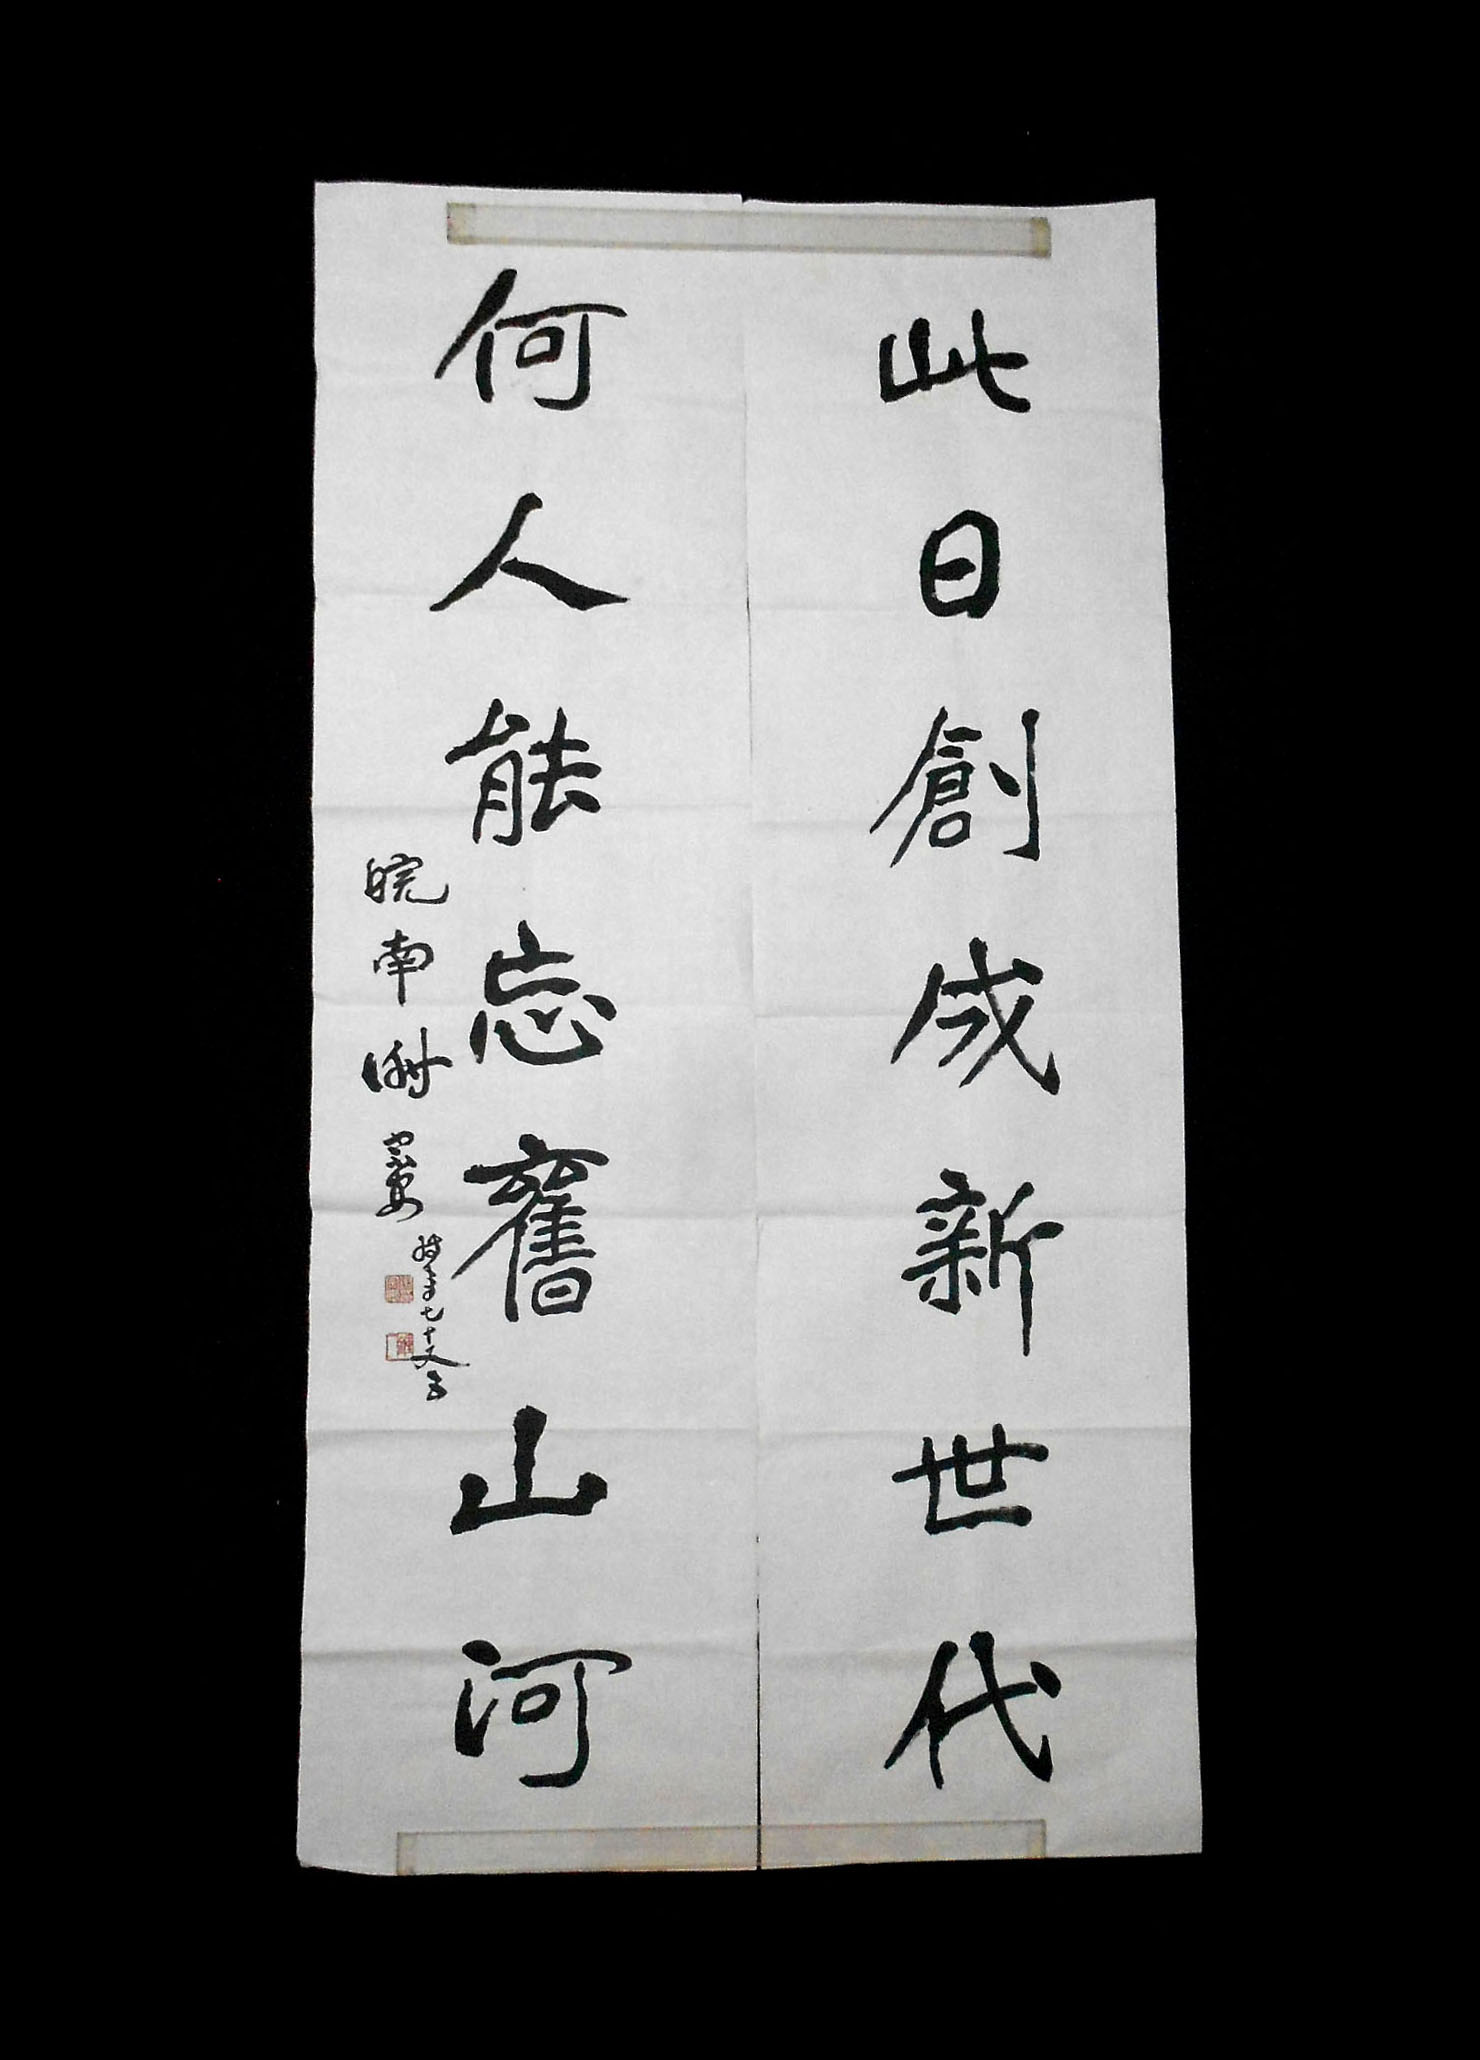 此日創成新世代
何人能忘舊山河
皖南謝宗安
時年七十又五